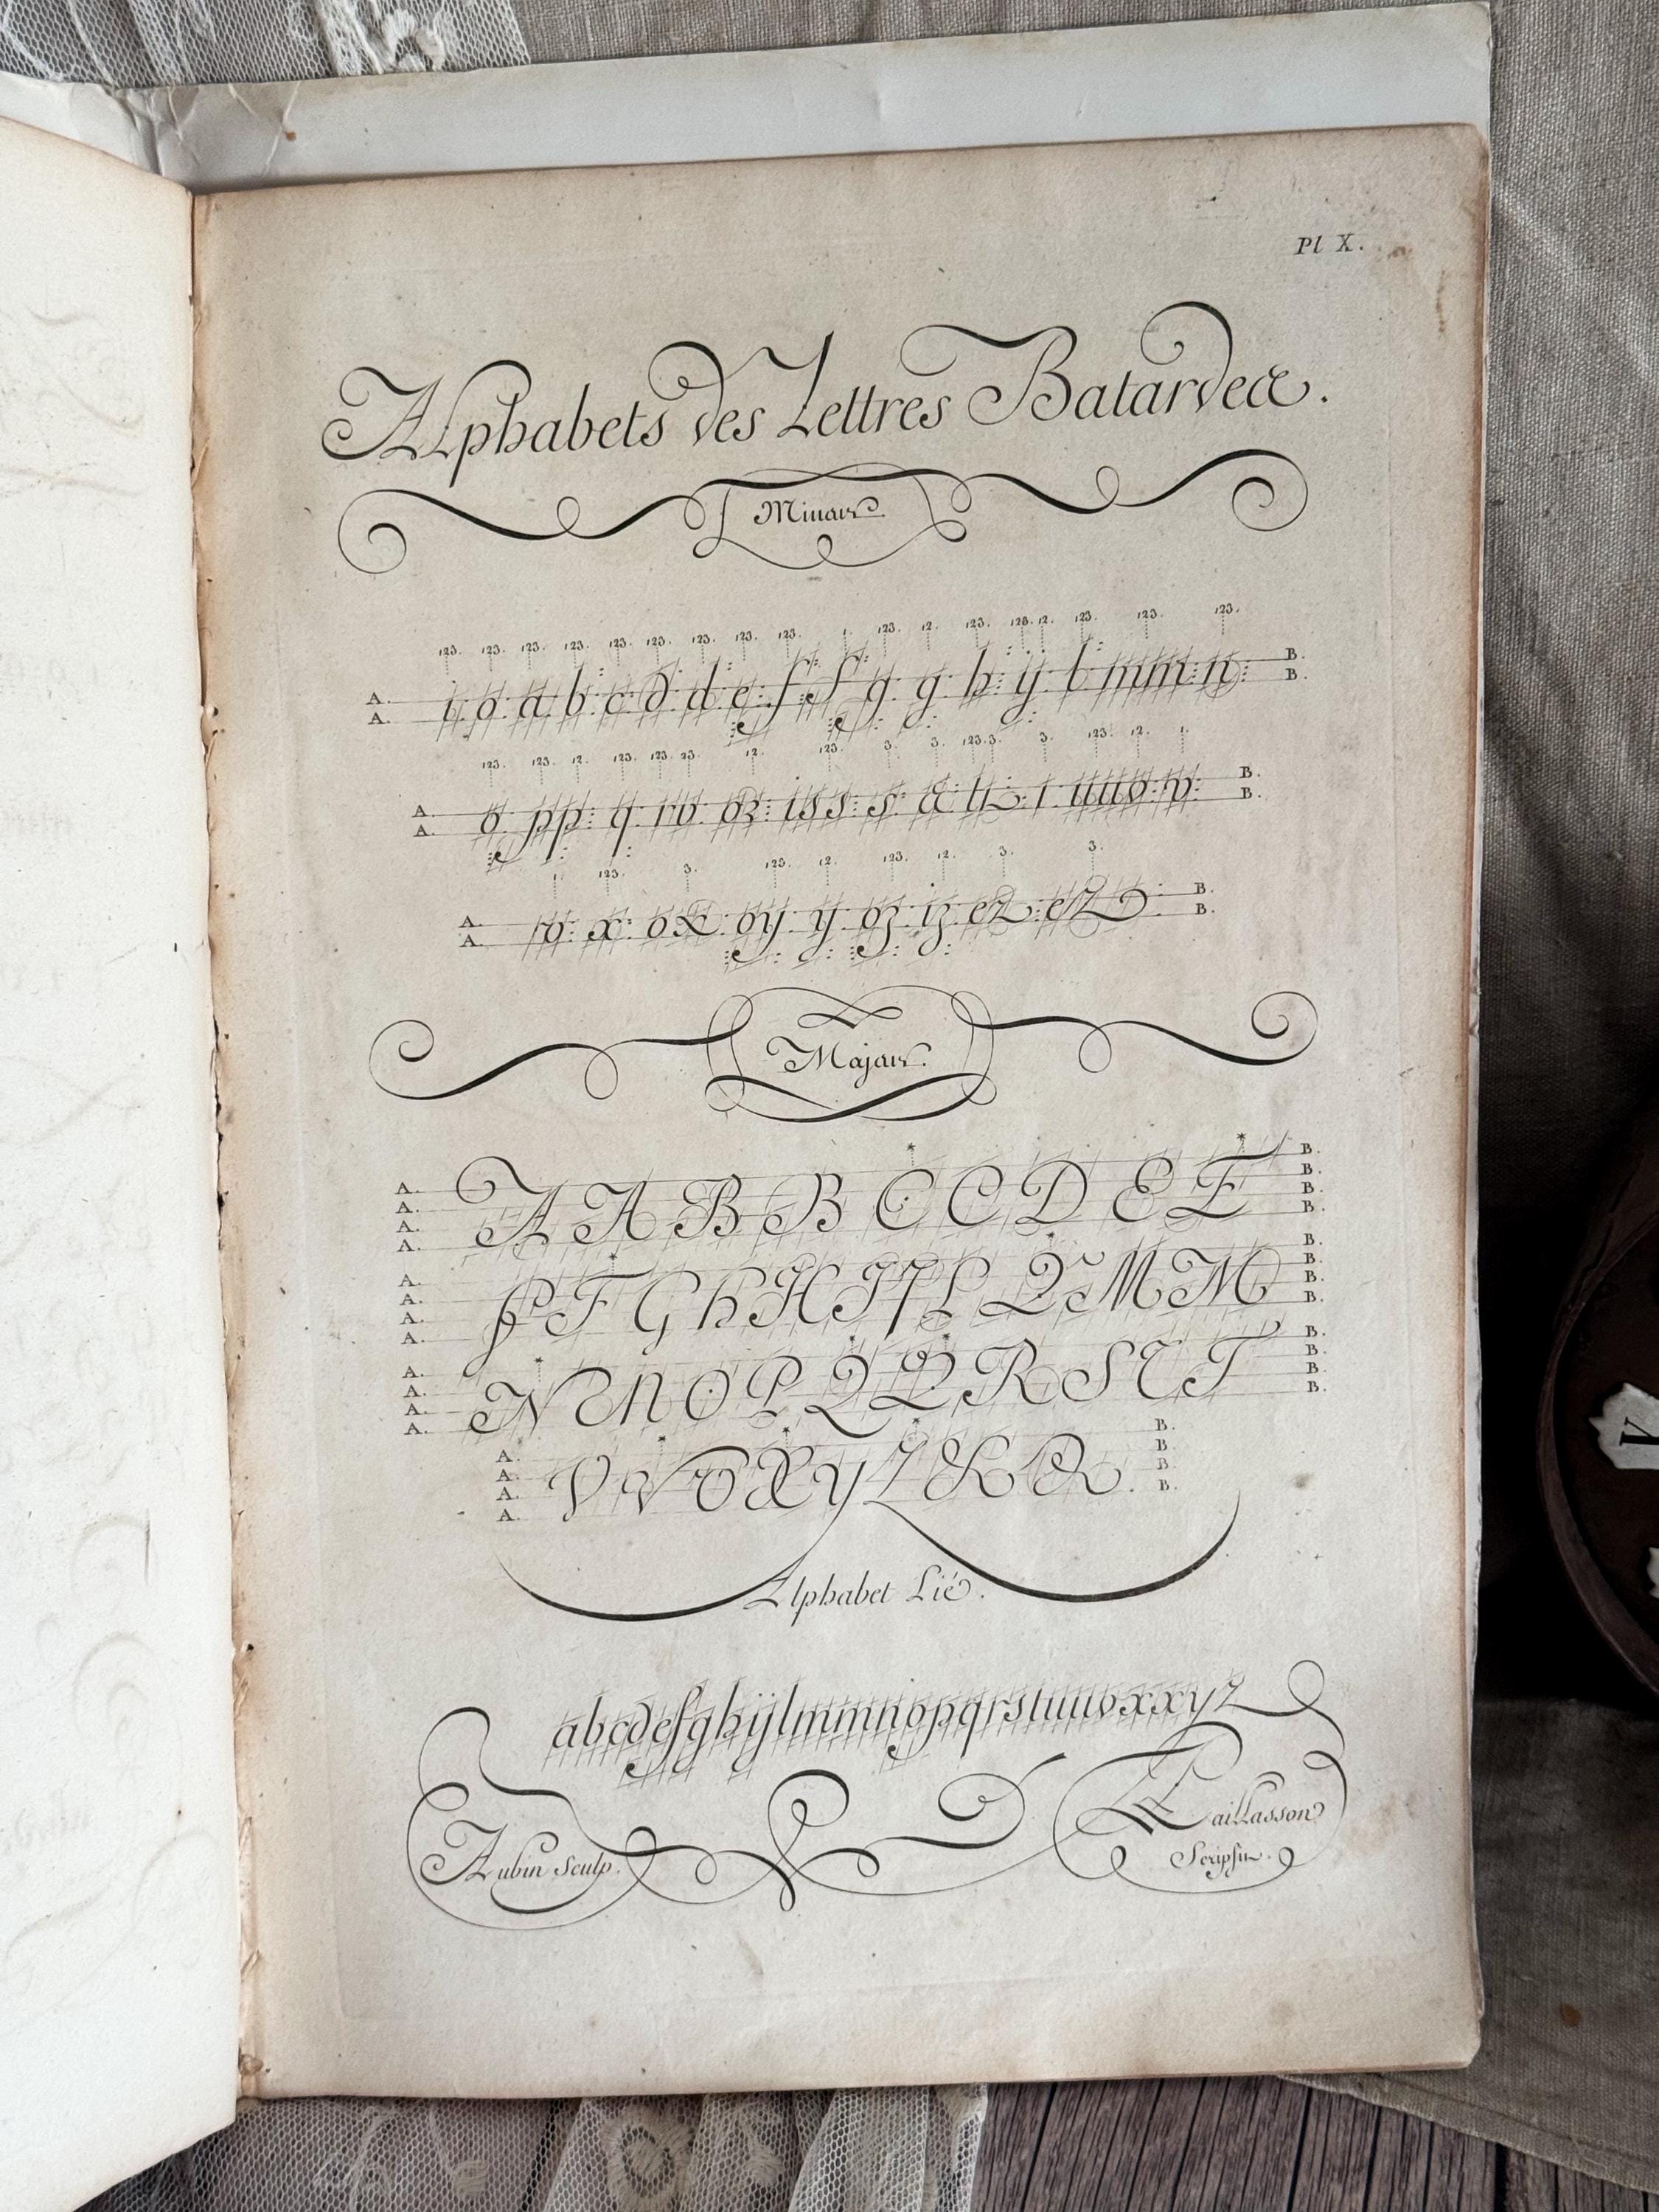 Pl X.
Alphabets des Lettres Batardes.
Mineurs.
123. 123. 123. 123. 123. 123. 123. 123. 123. 1. 123. 12. 123. 123. 12. 123. 123. 123.
A. i o a b c d d e f f g g h ij l m m n B.
A. B.
123. 123. 12. 123. 123. 23. 12. 123. 3. 3. 123. 3. 3. 123. 12. 1.
A. o p p q r v o z i s s s & t t u u v v B.
A. B.
1. 123. 3. 123. 12. 123. 12. 3. 3.
A. v x o x o y y o z i z e z e z B.
A. B.
Majeurs.
A A B B C C D E E
F F G h H I J L L M M
N N O P Q Q R S T T
V V V X Y Z & &
Alphabet Lié.
abcdefghijlmmnopqrstuuvxxyz
Aubin Sculp.
Paillasson
Scripsit.